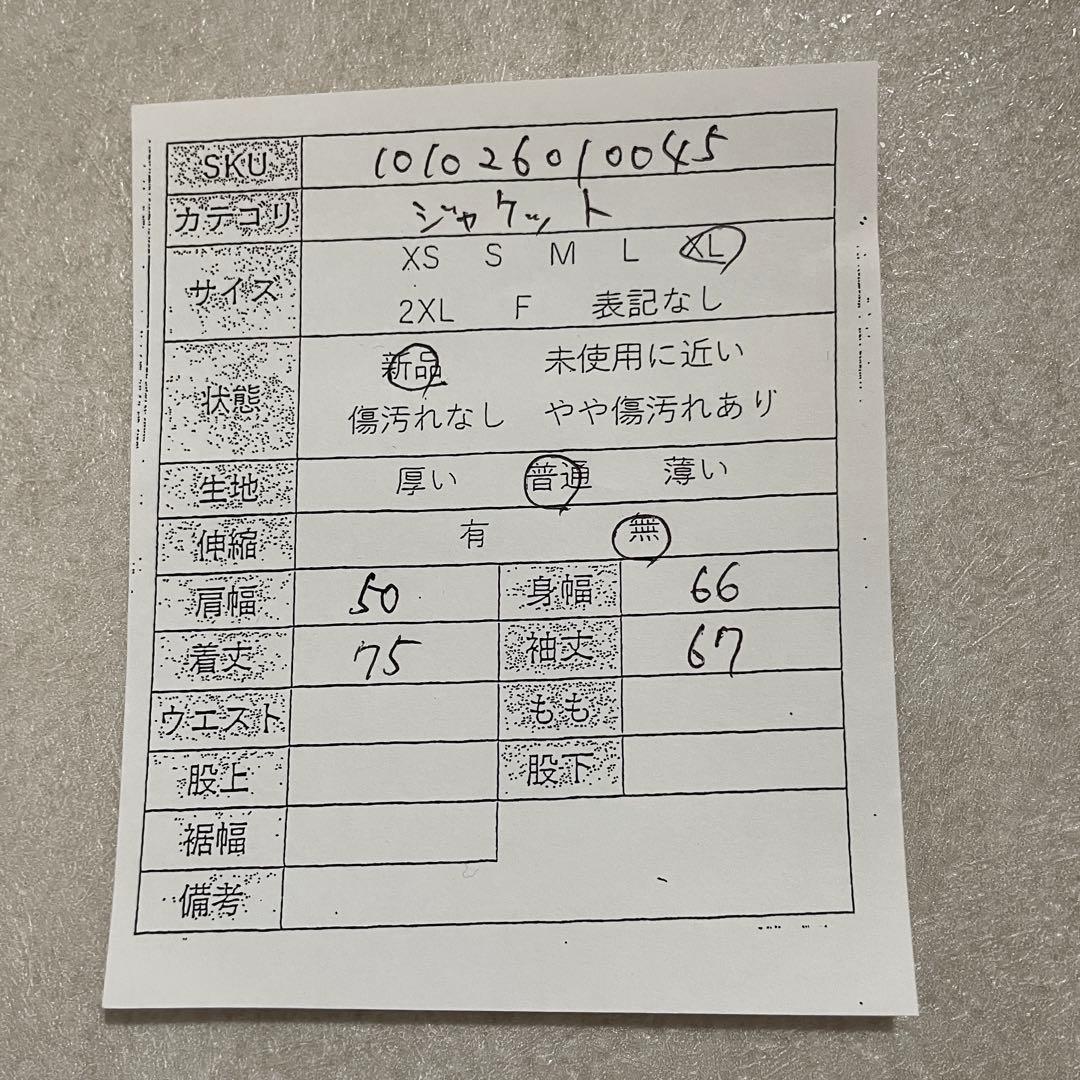 SKU 101026010045
カテゴリ ジャケット
サイズ XS S M L XL
2XL F 表記なし
状態 新品 未使用に近い
傷汚れなし やや傷汚れあり
生地 厚い 普通 薄い
伸縮 有 無
肩幅 50 身幅 66
着丈 75 袖丈 67
ウエスト もも
股上 股下
裾幅
備考